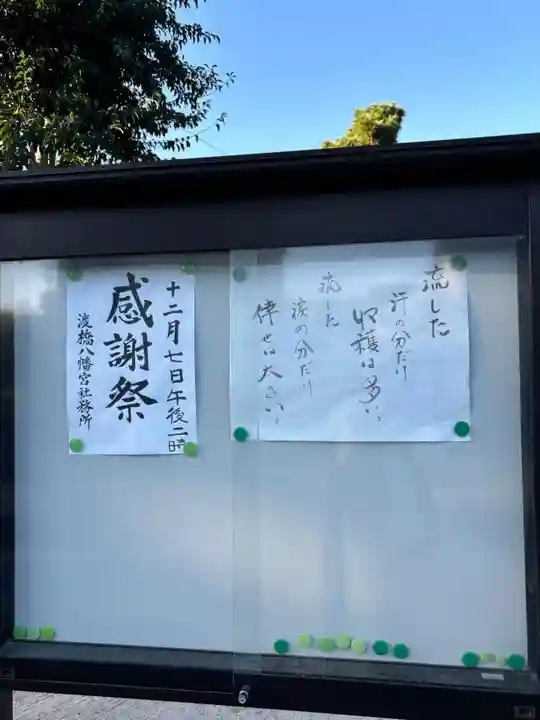 流した
汗の分だけ
収穫は多い。
流した
涙の分だけ
倖せは大きい。
十二月七日午後二時
感謝祭
渡橋八幡宮社務所